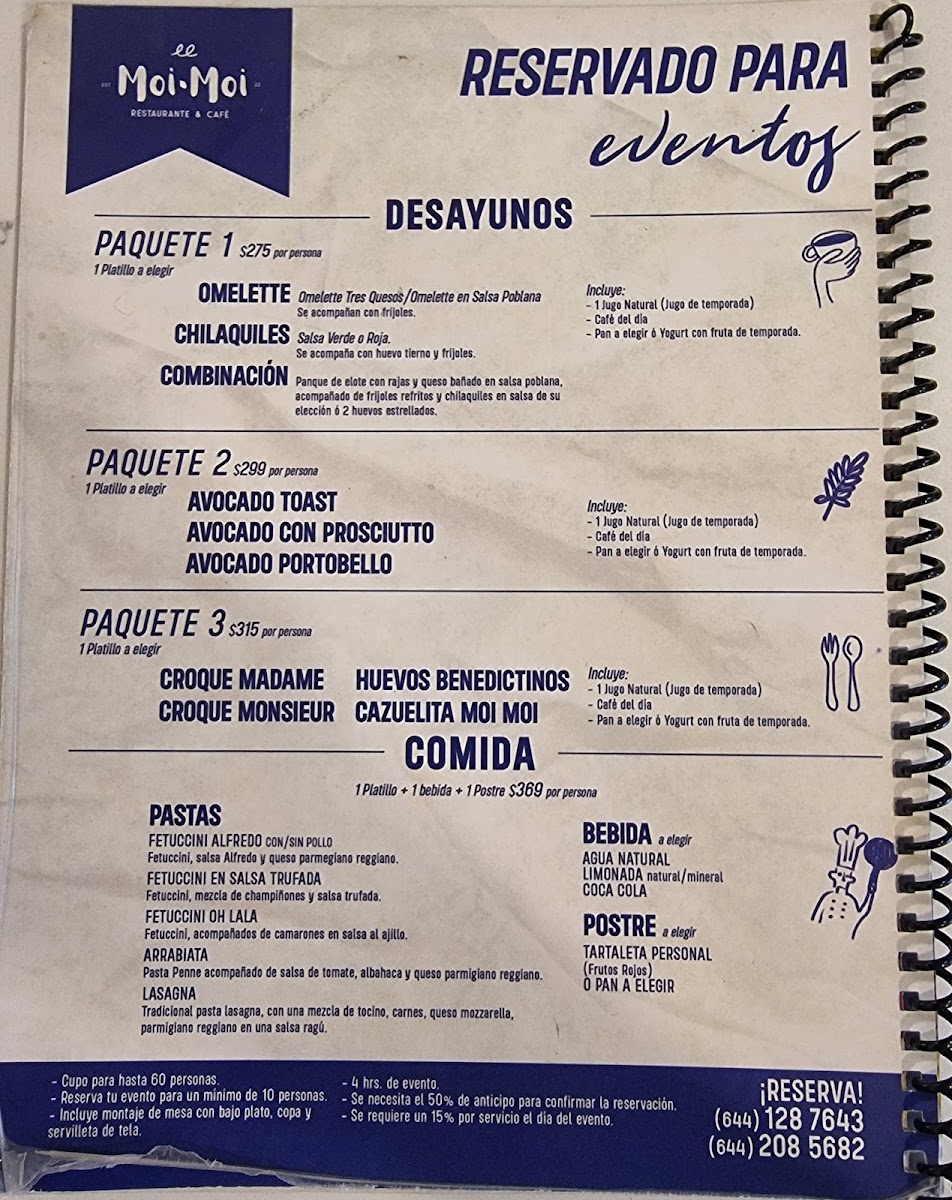 ee
EST Moi•Moi 22
RESTAURANTE & CAFÉ
RESERVADO PARA
eventos
DESAYUNOS
PAQUETE 1 $275 por persona
1 Platillo a elegir
OMELETTE Omelette Tres Quesos/Omelette en Salsa Poblana
Se acompañan con frijoles.
CHILAQUILES Salsa Verde o Roja.
Se acompaña con huevo tierno y frijoles.
COMBINACIÓN Panque de elote con rajas y queso bañado en salsa poblana,
acompañado de frijoles refritos y chilaquiles en salsa de su
elección ó 2 huevos estrellados.
Incluye:
- 1 Jugo Natural (Jugo de temporada)
- Café del día
- Pan a elegir ó Yogurt con fruta de temporada.
PAQUETE 2 $299 por persona
1 Platillo a elegir
AVOCADO TOAST
AVOCADO CON PROSCIUTTO
AVOCADO PORTOBELLO
Incluye:
- 1 Jugo Natural (Jugo de temporada)
- Café del día
- Pan a elegir ó Yogurt con fruta de temporada.
PAQUETE 3 $315 por persona
1 Platillo a elegir
CROQUE MADAME HUEVOS BENEDICTINOS
CROQUE MONSIEUR CAZUELITA MOI MOI
Incluye:
- 1 Jugo Natural (Jugo de temporada)
- Café del día
- Pan a elegir ó Yogurt con fruta de temporada.
COMIDA
1 Platillo + 1 bebida + 1 Postre $369 por persona
PASTAS
FETUCCINI ALFREDO CON/SIN POLLO
Fetuccini, salsa Alfredo y queso parmegiano reggiano.
FETUCCINI EN SALSA TRUFADA
Fetuccini, mezcla de champiñones y salsa trufada.
FETUCCINI OH LALA
Fetuccini, acompañados de camarones en salsa al ajillo.
ARRABIATA
Pasta Penne acompañado de salsa de tomate, albahaca y queso parmigiano reggiano.
LASAGNA
Tradicional pasta lasagna, con una mezcla de tocino, carnes, queso mozzarella,
parmigiano reggiano en una salsa ragú.
BEBIDA a elegir
AGUA NATURAL
LIMONADA natural/mineral
COCA COLA
POSTRE a elegir
TARTALETA PERSONAL
(Frutos Rojos)
O PAN A ELEGIR
- Cupo para hasta 60 personas.
- Reserva tu evento para un mínimo de 10 personas.
- Incluye montaje de mesa con bajo plato, copa y
servilleta de tela.
- 4 hrs. de evento.
- Se necesita el 50% de anticipo para confirmar la reservación.
- Se requiere un 15% por servicio el día del evento.
¡RESERVA!
(644) 128 7643
(644) 208 5682